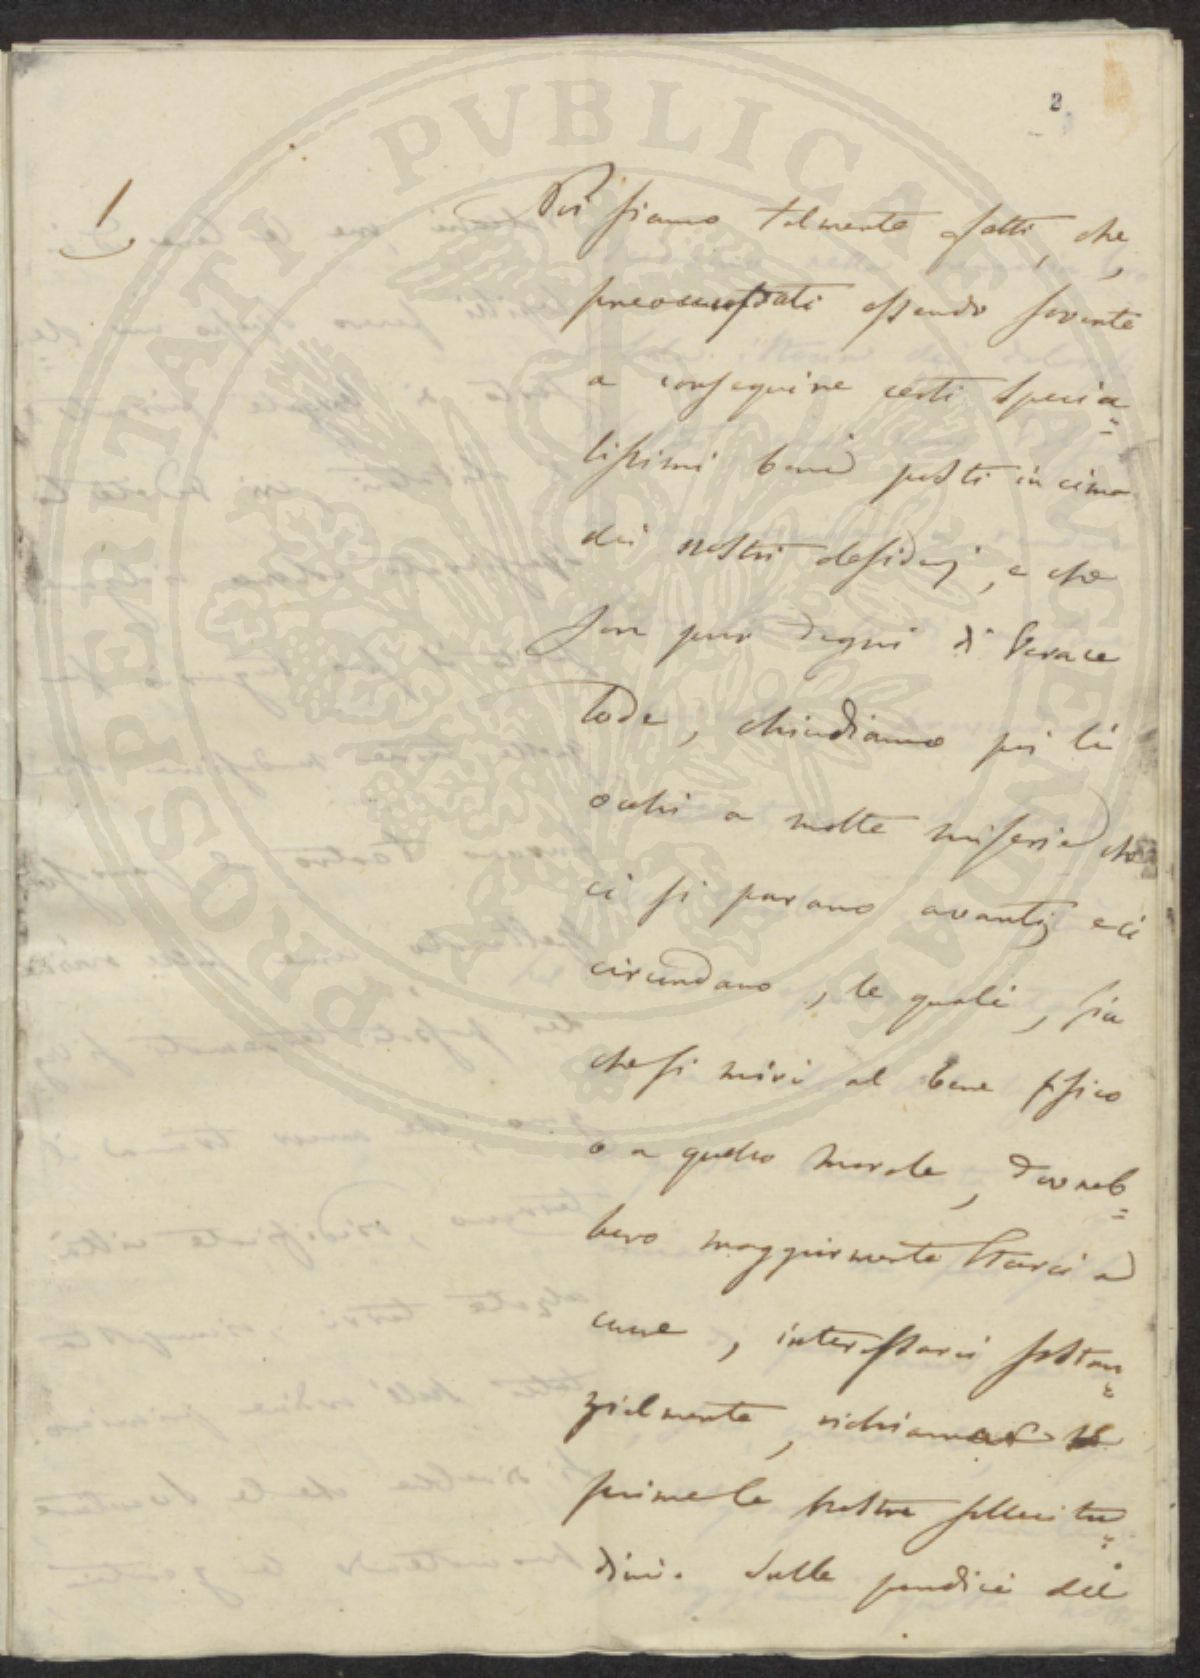 2
1
Noi siamo talmente fatti, che,
preoccupati essendo sovente
a conseguire certi specia=
lissimi beni posti in cima
dei nostri desiderj, e che
son pur degni di verace
lode, chiudiamo poi li
occhi a molte miserie che
ci si parano avanti, e ci
circondano, le quali, sia
che si miri al bene fisico
o a quello morale, dovreb=
bero maggiormente starci a
cuore, interessarci sostan=
zialmente, richiamar
prime le nostre sollecitu=
dini. Sulle pendici del
PROSPERITATI PVBLICAE AVGENDAE